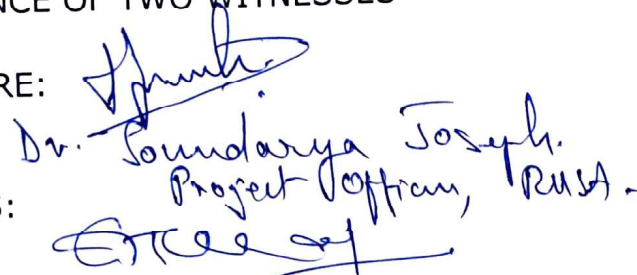 NCE OF TWO WITNESSES
RE:
Dr. Soundarya Joseph.
Project Officer, RUSA.
: